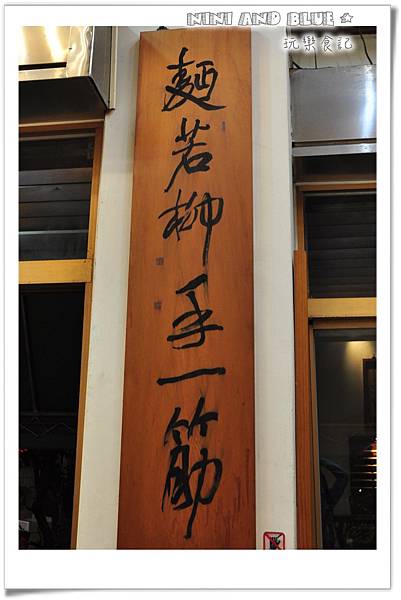 NINI AND BLUE ★
玩樂食記
麵若柳手一筋